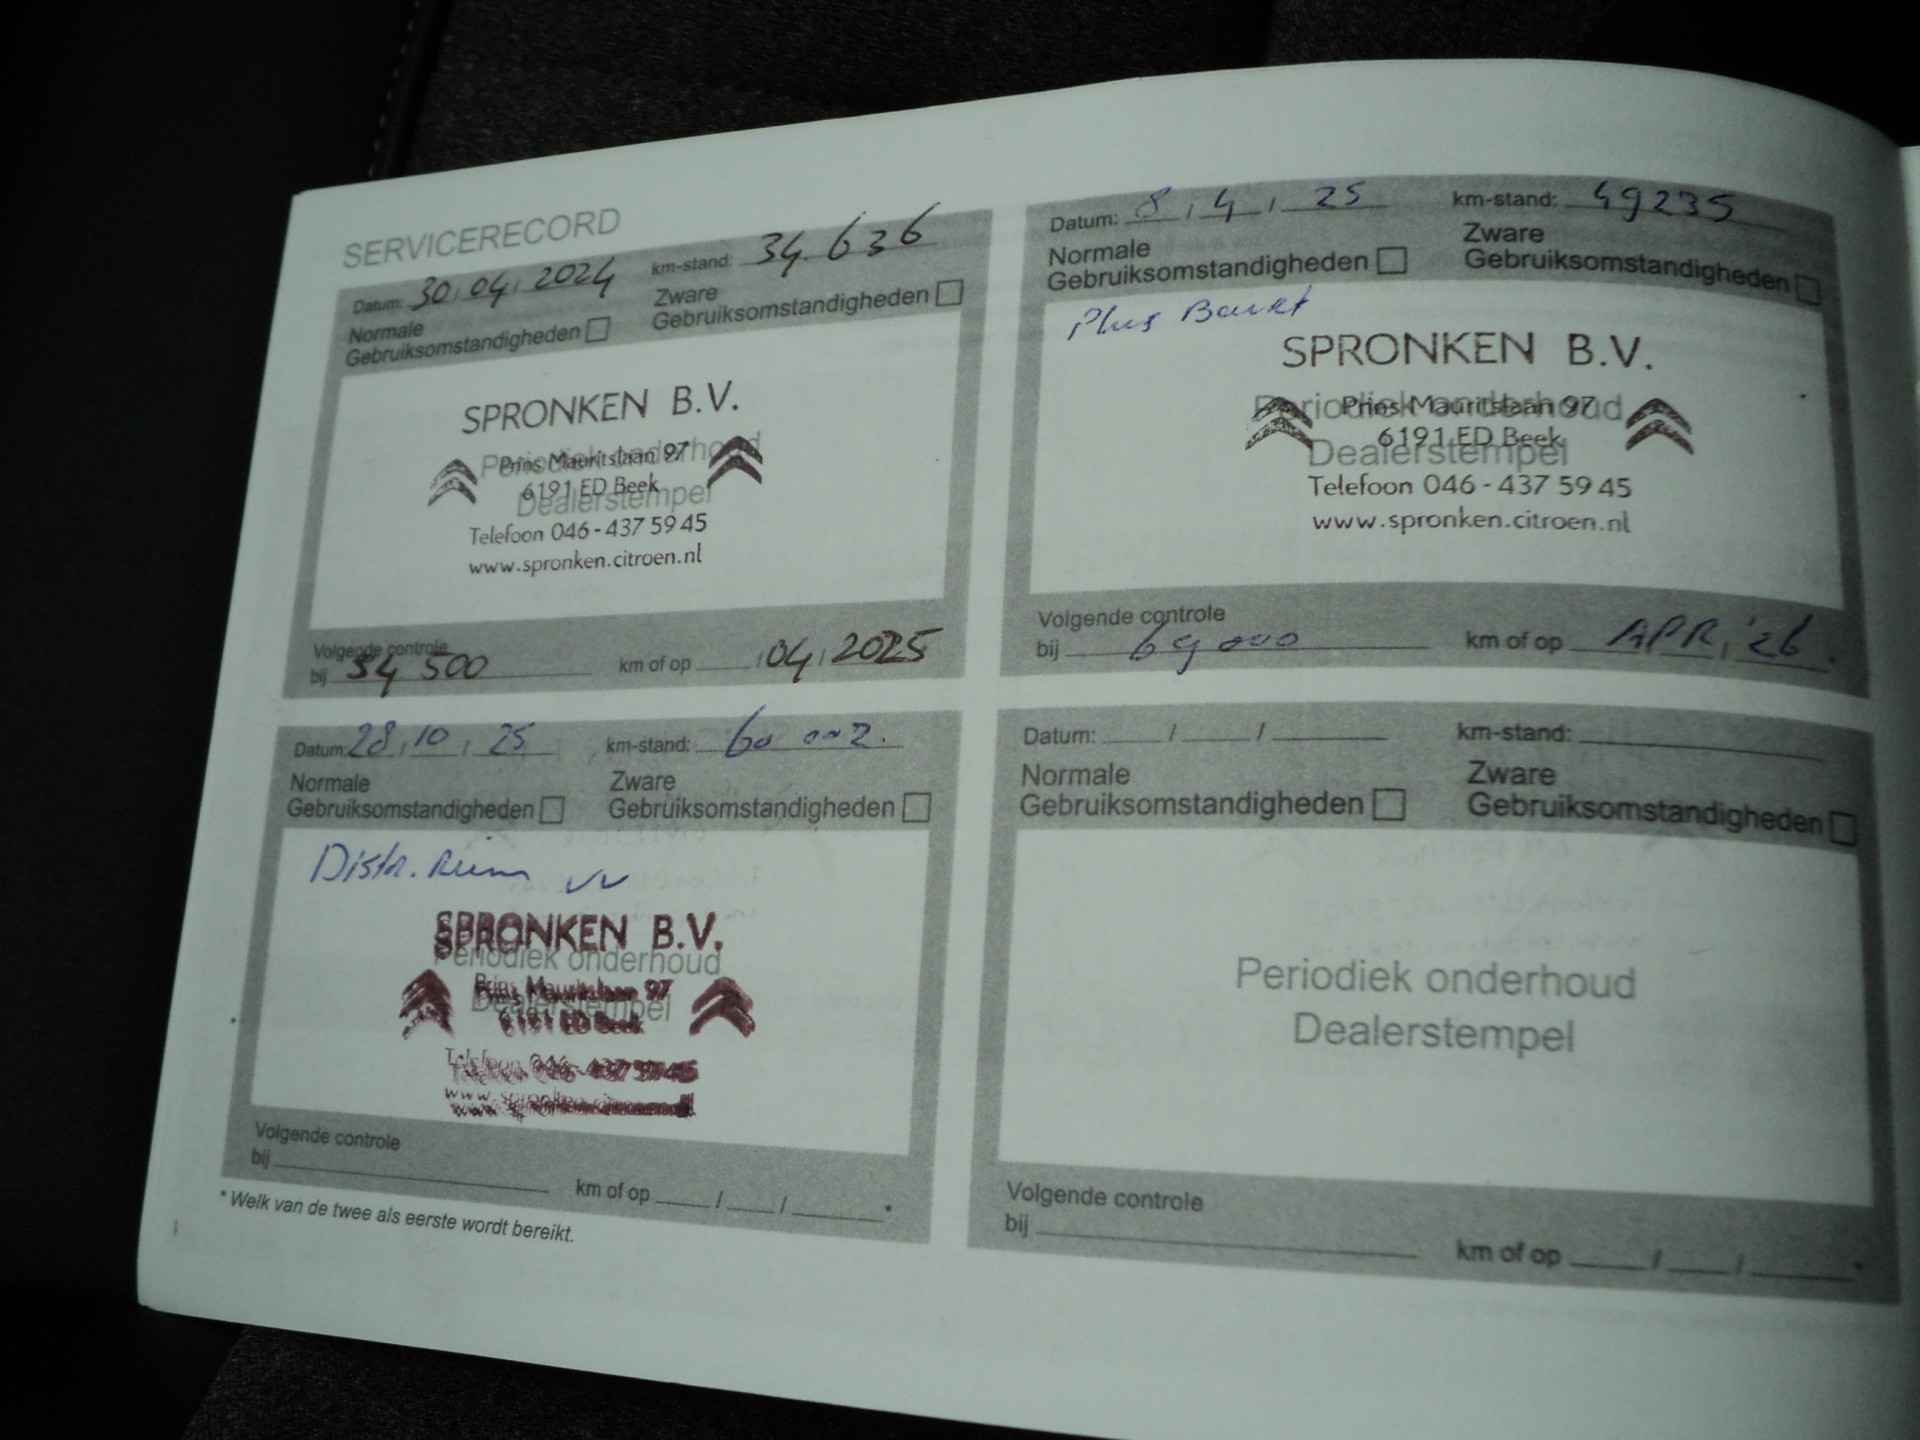 SERVICERECORD
Datum: 30,04,2024 km-stand: 34.636
Normale Gebruiksomstandigheden
Zware Gebruiksomstandigheden
SPRONKEN B.V.
Periodiek onderhoud
Prins Mauritslaan 97
6191 ED Beek
Dealerstempel
Telefoon 046-437 59 45
www.spronken.citroen.nl
Volgende controle
bij 54 500 km of op /04,2025
Datum: 8,4,25 km-stand: 49235
Normale Gebruiksomstandigheden
Zware Gebruiksomstandigheden
Plus
SPRONKEN B.V.
Periodiek onderhoud
Prins Mauritslaan 97
6191 ED Beek
Dealerstempel
Telefoon 046-437 59 45
www.spronken.citroen.nl
Volgende controle
bij 69000 km of op APR,'26.
Datum: 28,10,25 km-stand: 60 002.
Normale Gebruiksomstandigheden
Zware Gebruiksomstandigheden
Distr. Riem vv
SPRONKEN B.V.
Periodiek onderhoud
Prins Mauritslaan 97
Dealerstempel
6191 ED Beek
Telefoon 046-437 59 45
www.spronken.citroen.nl
Volgende controle
bij km of op / / *
* Welk van de twee als eerste wordt bereikt.
Datum: / / km-stand:
Normale Gebruiksomstandigheden
Zware Gebruiksomstandigheden
Periodiek onderhoud
Dealerstempel
Volgende controle
bij km of op / / *